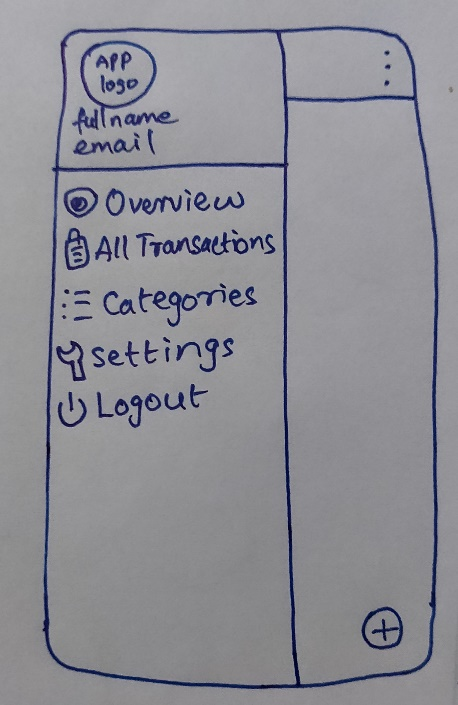 APP
logo
fullname
email
Overview
All Transactions
Categories
settings
Logout